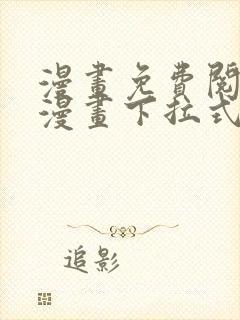 漫畫免費閱
漫畫下拉式
追影